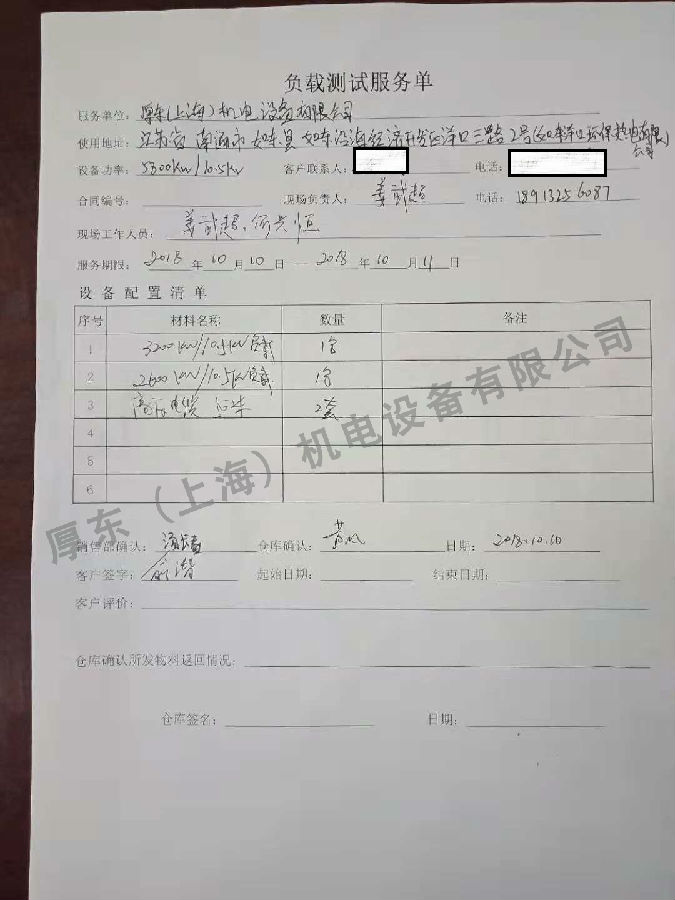 负载测试服务单
服务单位：厚东(上海)机电设备有限公司
使用地址：江苏省南通市如东县如东沿海经济开发区洋口三路2号(如东洋口环保热电有限公司
设备功率：5300kw/10.5kv 客户联系人： 电话：
合同编号： 现场负责人：姜武超 电话：18913256087
现场工作人员：姜武超、何兴恒
服务期限：2018年10月10日—2018年10月11日
设备配置清单
序号 材料名称 数量 备注
1 3200kw/10.5kv负载 1台
2 2600kw/10.5kv负载 1台
3 高压电缆 2套
4
5
6
厚东（上海）机电设备有限公司
销售部确认： 仓库确认： 日期：2018.10.10
客户签字： 起始日期： 结束日期：
客户评价：
仓库确认所发物料返回情况：
仓库签名： 日期：